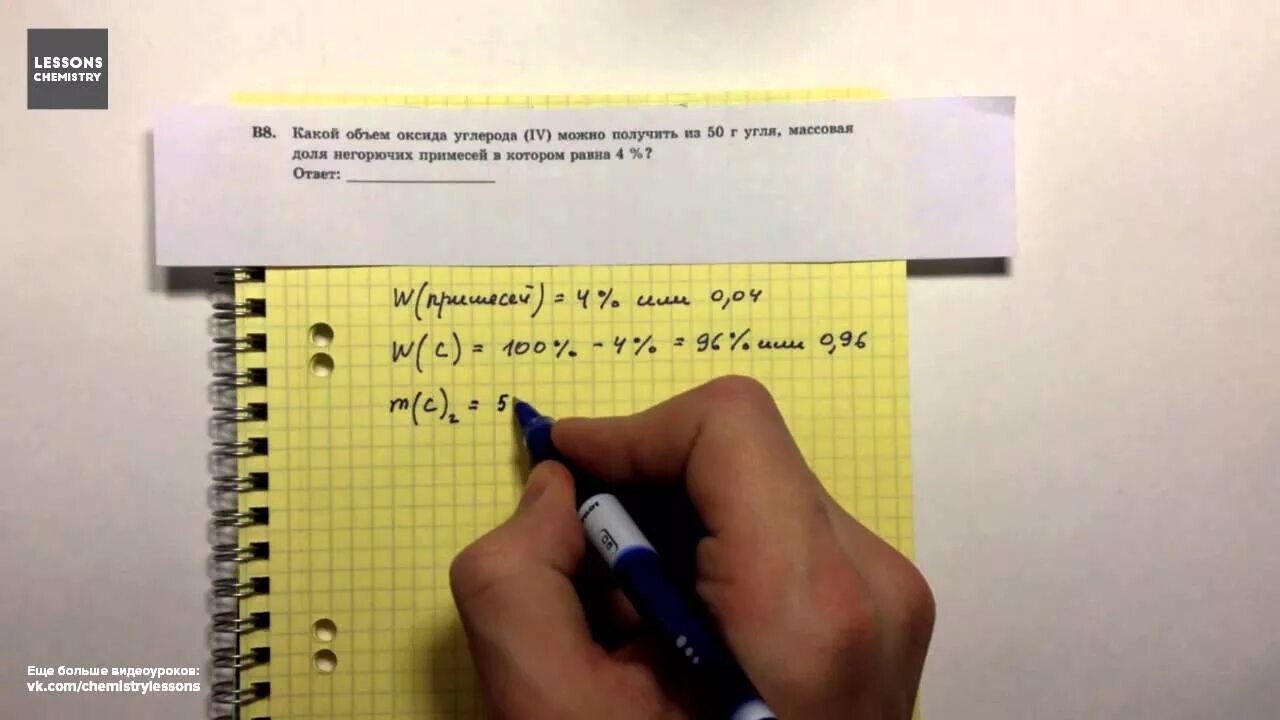 LESSONS
CHEMISTRY
В8. Какой объем оксида углерода (IV) можно получить из 50 г угля, массовая
доля негорючих примесей в котором равна 4 %?
Ответ: _______________
W(примесей) = 4% или 0,04
W(C) = 100% - 4% = 96% или 0,96
m(C)₂ = 5
Еще больше видеоуроков:
vk.com/chemistrylessons